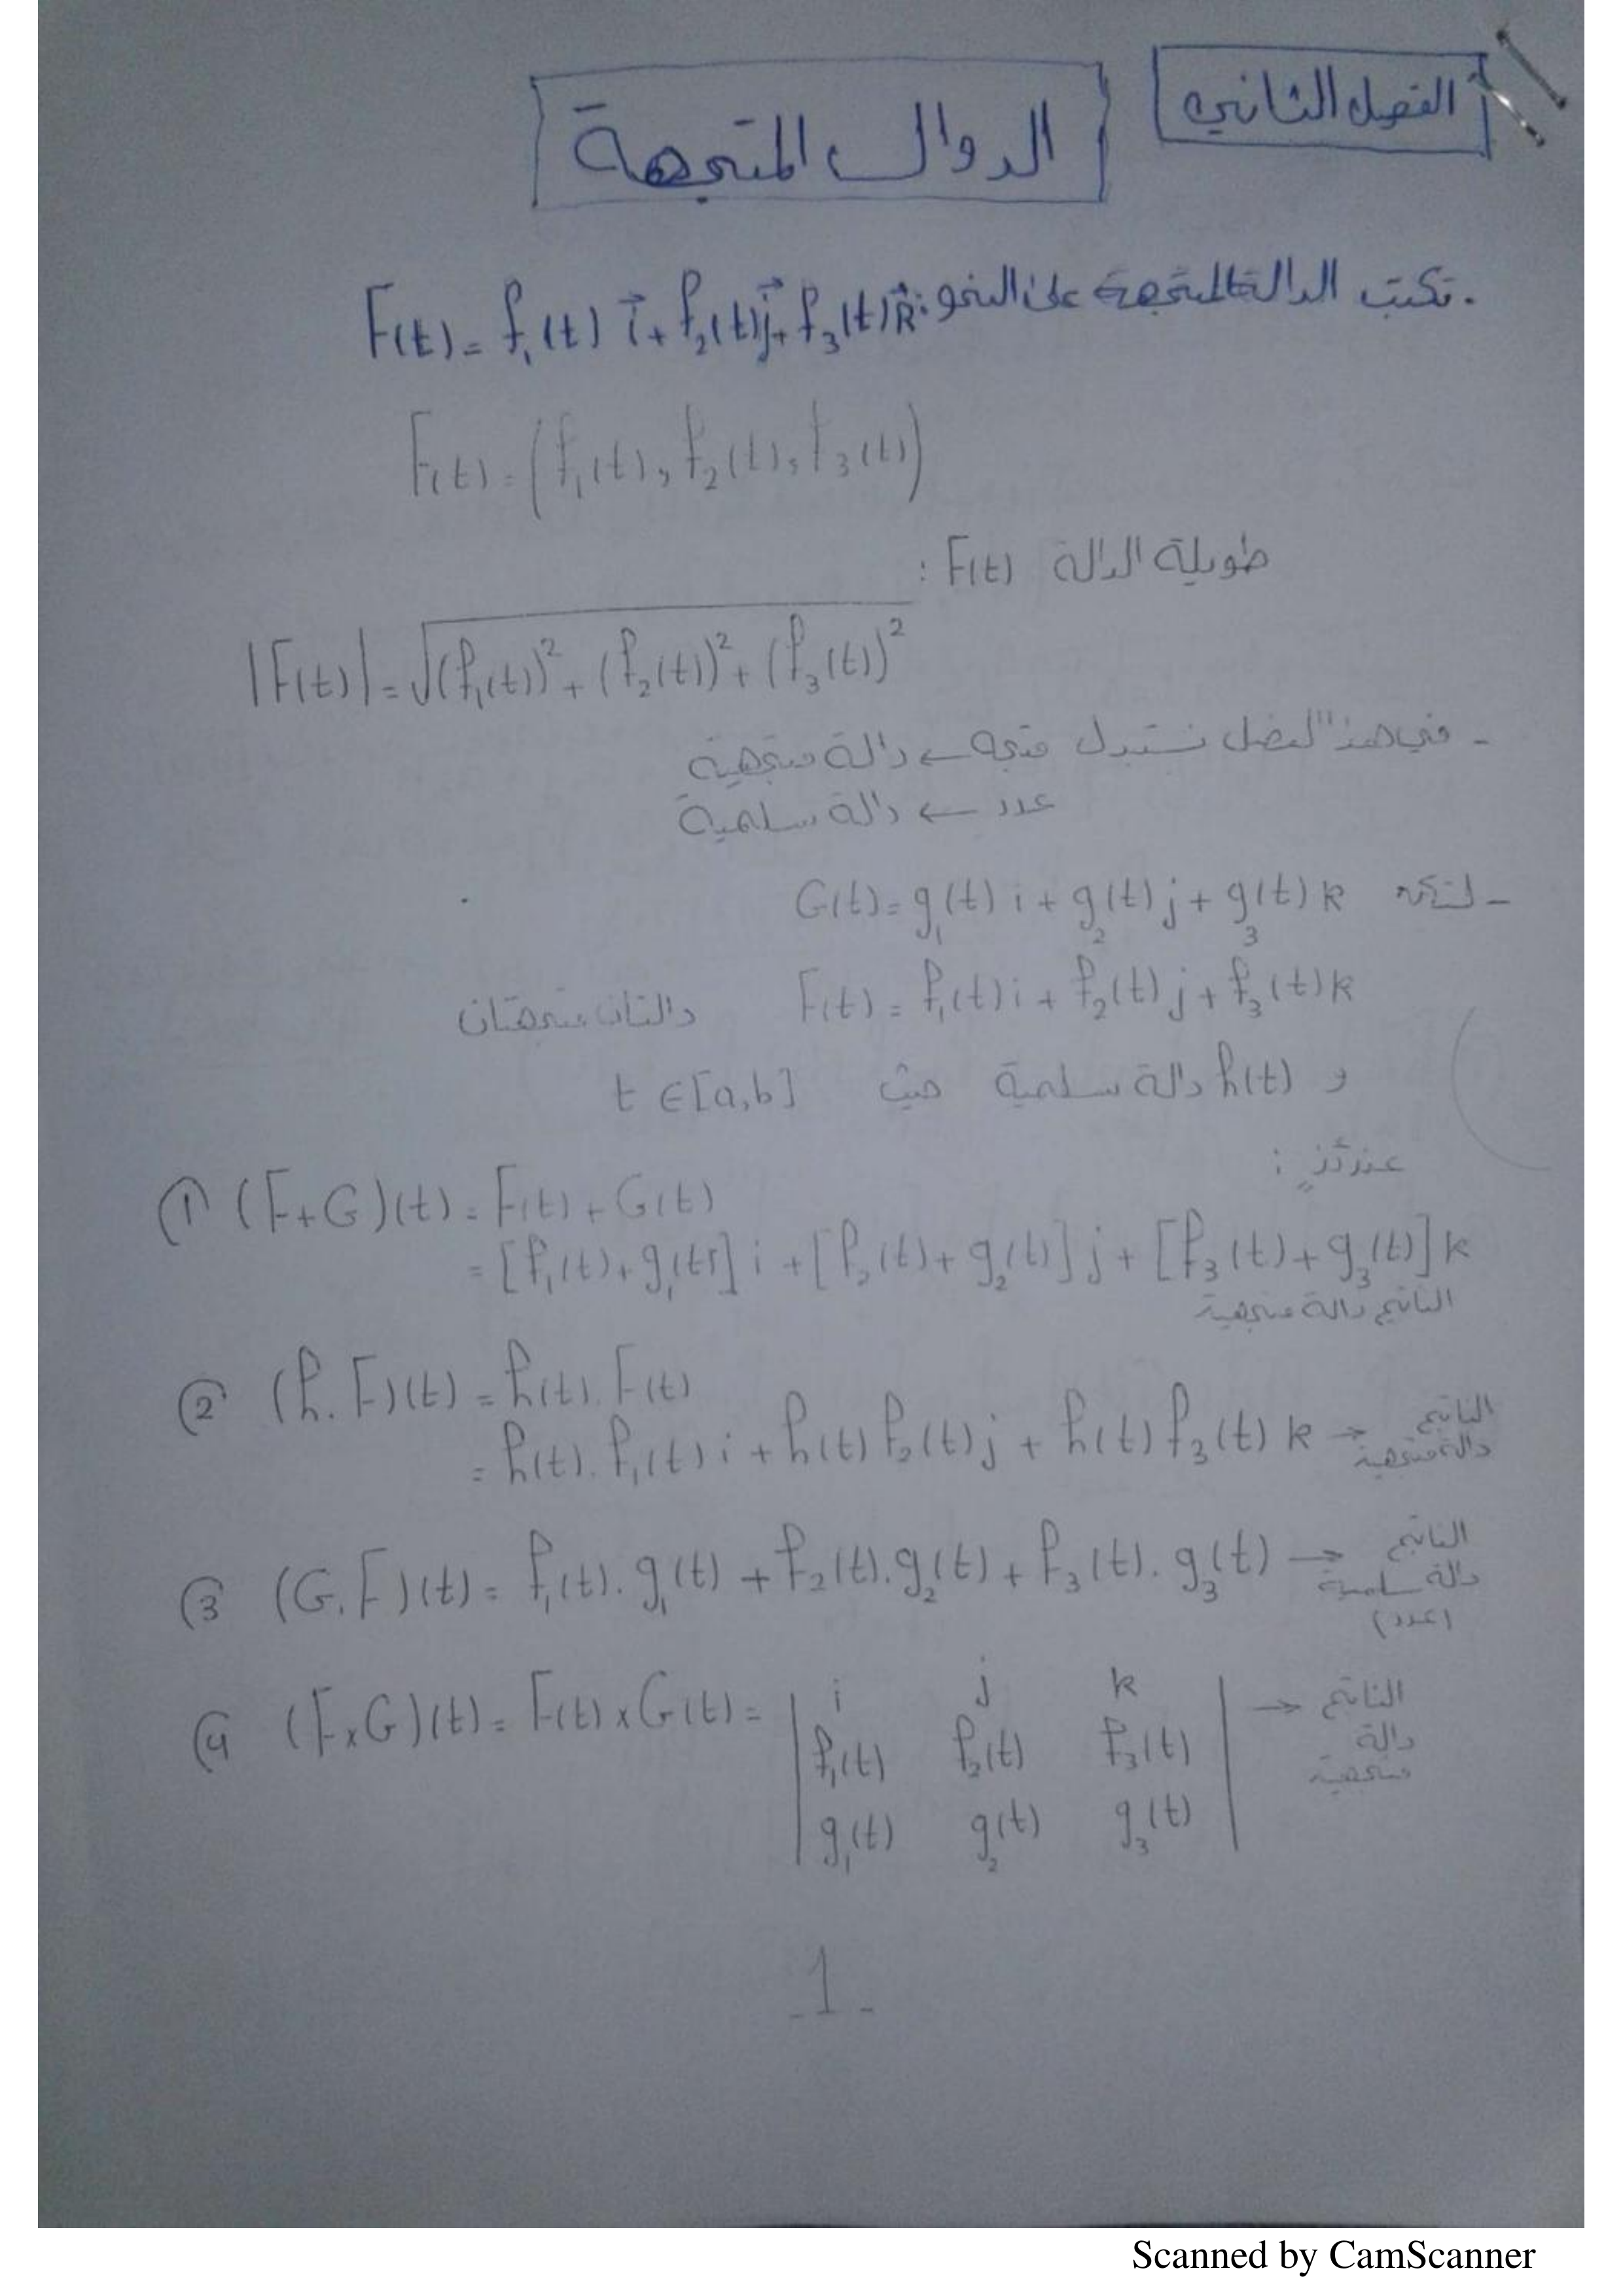 الفصل الثاني
الدوال المتجهة
. تكتب الدالة المتجهة على النحو: F(t) = f₁(t) i⃗ + f₂(t) j⃗ + f₃(t) k⃗
F(t) = (f₁(t), f₂(t), f₃(t))
طويلة الدالة F(t) :
|F(t)| = √((f₁(t))² + (f₂(t))² + (f₃(t))²)
- في هذا الفصل نستبدل متجه ← دالة متجهية
عدد ← دالة سلمية
- لتكن G(t) = g₁(t) i + g₂(t) j + g₃(t) k
F(t) = f₁(t) i + f₂(t) j + f₃(t) k دالتان متجهتان
و h(t) دالة سلمية حيث t ∈ [a,b]
عندئذٍ :
① (F+G)(t) = F(t) + G(t)
= [f₁(t) + g₁(t)] i + [f₂(t) + g₂(t)] j + [f₃(t) + g₃(t)] k
الناتج دالة متجهية
② (h.F)(t) = h(t). F(t)
= h(t). f₁(t) i + h(t) f₂(t) j + h(t) f₃(t) k → الناتج
دالة متجهية
③ (G.F)(t) = f₁(t). g₁(t) + f₂(t). g₂(t) + f₃(t). g₃(t) → الناتج
دالة سلمية
(عدد)
④ (F×G)(t) = F(t) × G(t) = | i j k | → الناتج
| f₁(t) f₂(t) f₃(t) | دالة
| g₁(t) g₂(t) g₃(t) | متجهية
-1-
Scanned by CamScanner